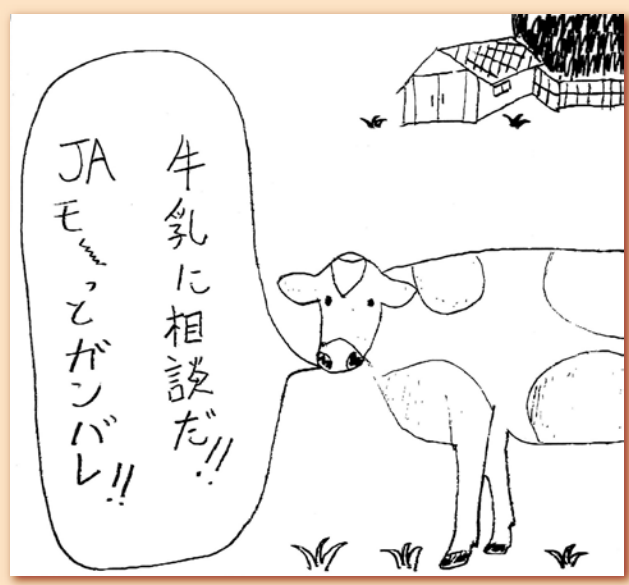 牛乳に相談だ!!
JAモ〜っとガンバレ!!